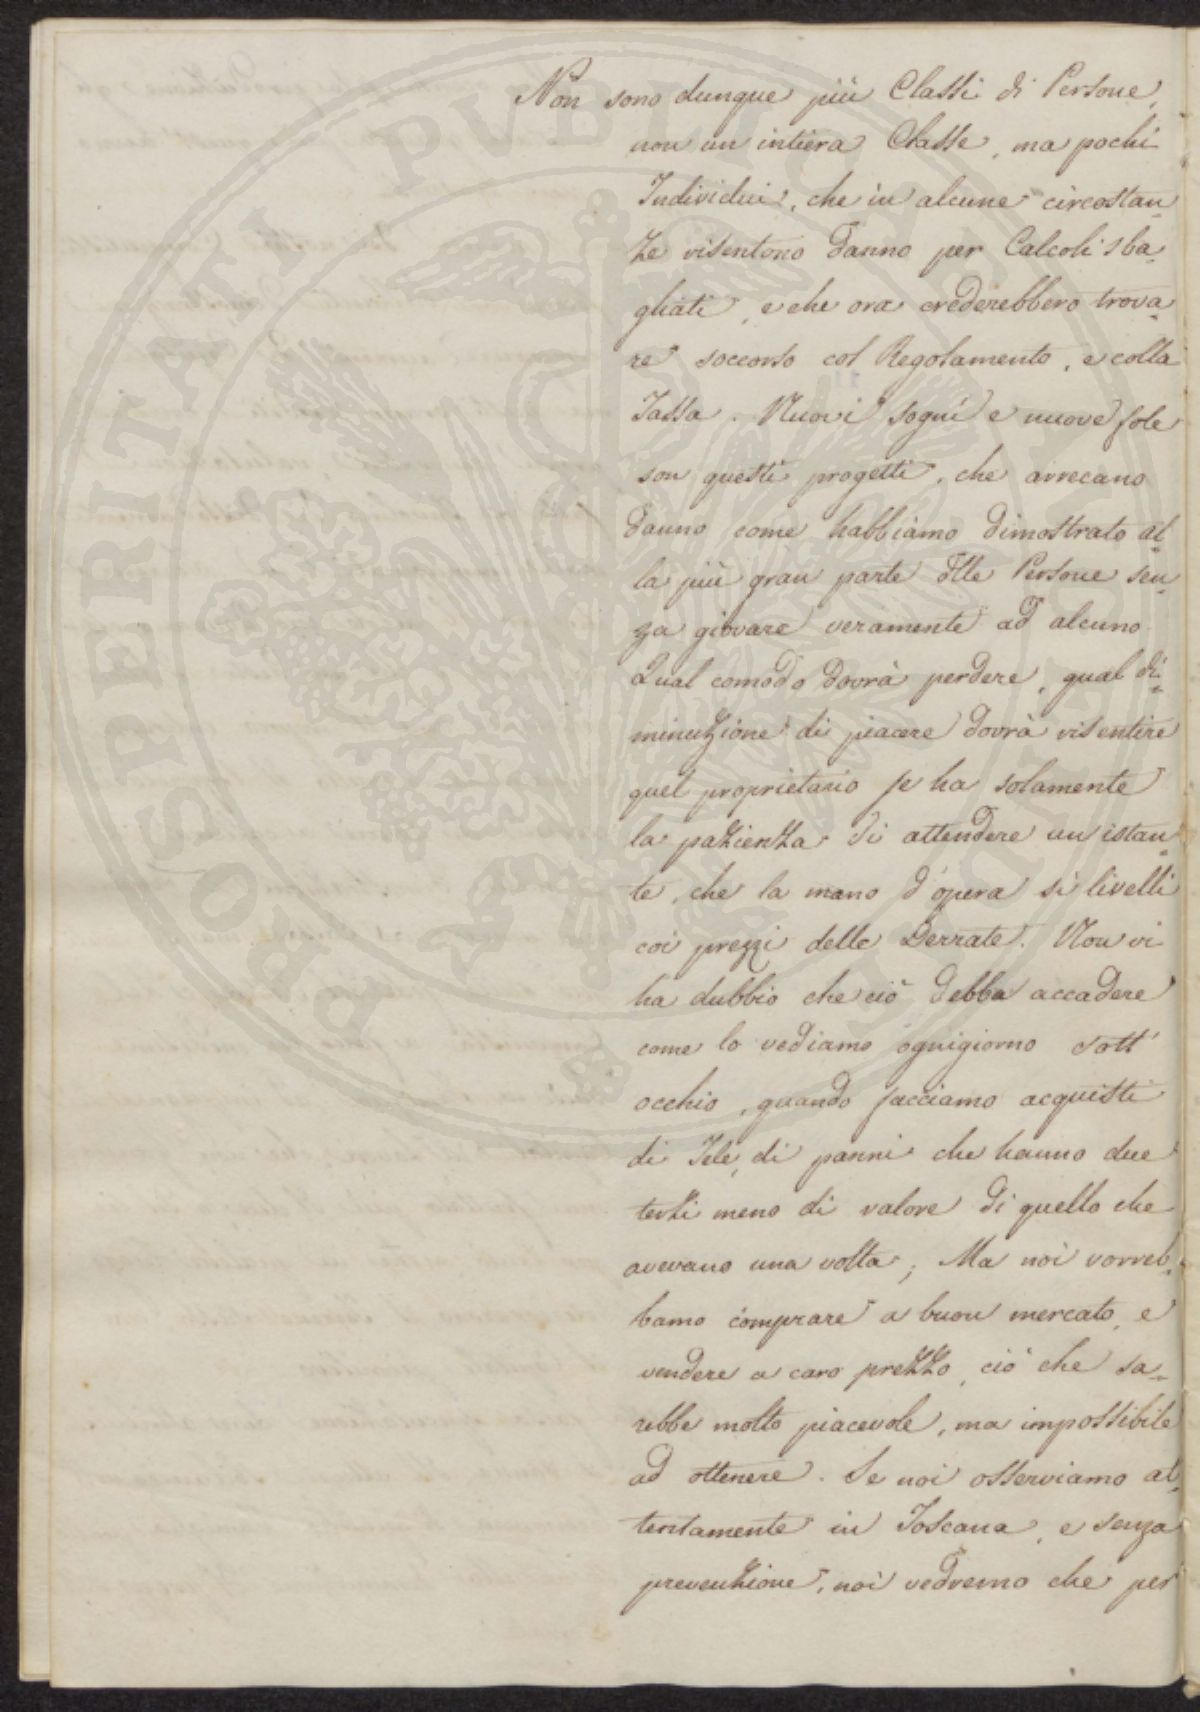 Non sono dunque più Classi di Persone,
non un intiera Classe, ma pochi
Individui, che in alcune circostan=
ze risentono danno per Calcoli sba=
gliati, e che ora crederebbero trova=
re soccorso col Regolamento, e colla
Tassa. Nuovi sogni e nuove fole
son questi progetti, che arrecano
danno come habbiamo dimostrato al=
la più gran parte dlle Persone sen=
za giovare veramente ad alcuno.
Qual comodo dovrà perdere, qual di=
minuzione di piacere dovrà risentire
quel proprietario se ha solamente
la pazienza di attendere un istan=
te, che la mano d'opera si livelli
coi prezzi delle Derrate. Non vi
ha dubbio che ciò debba accadere
come lo vediamo ognigiorno sott'
occhio, quando facciamo acquisti
di Tele, di panni che hanno due
terzi meno di valore di quello che
avevano una volta; Ma noi vorreb=
bamo comprare a buon mercato, e
vendere a caro prezzo, ciò che sa=
rebbe molto piacevole, ma impossibile
ad ottenere. Se noi osserviamo at=
tentamente in Toscana, e senza
prevenzione, noi vedremo che per
PROSPERITATI PUBLICAE